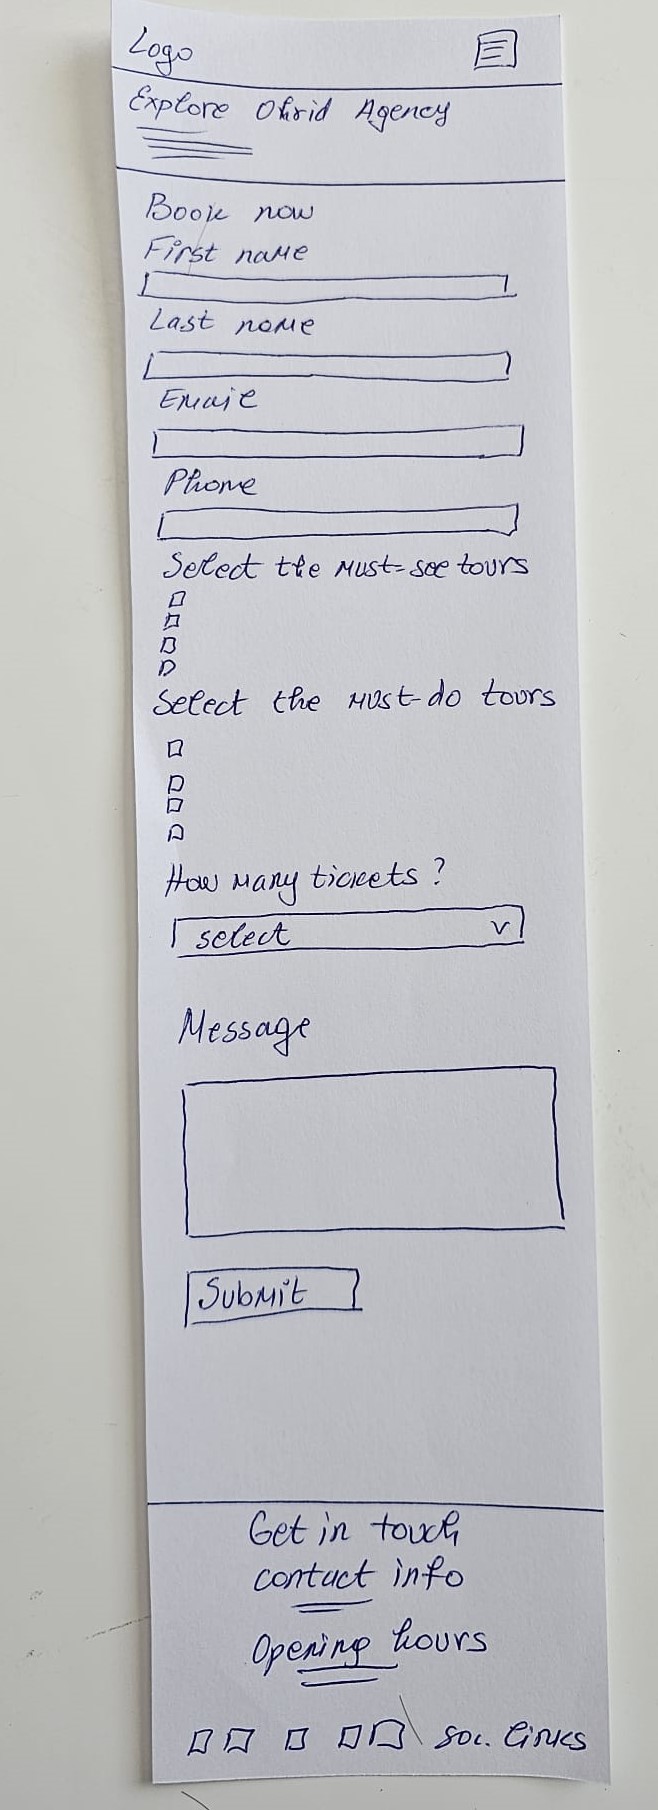 Logo
Explore Ohrid Agency
Book now
First name
Last name
Email
Phone
Select the must-see tours
Select the must-do tours
How many tickets?
select
Message
Submit
Get in touch
contact info
Opening hours
soc. links